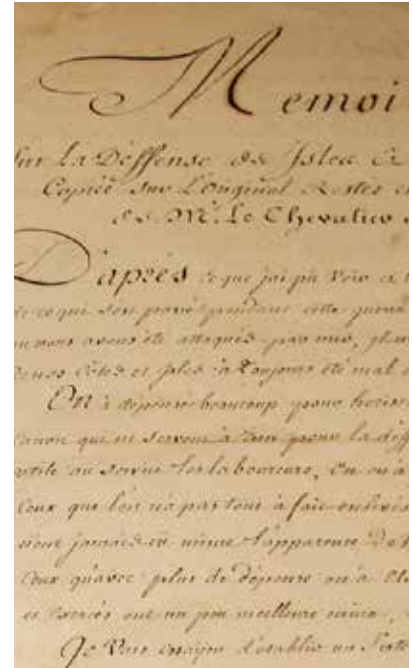 Memoi
Sur La Deffense des Isles et
Copiée sur L'original Restés e
de Mr. Le Chevalier d
D'après ce que j'ai pû Voir et
ce qui s'en passé pendant cette guerre
ou nous avons été attaqués par mer,
de nos Côtes et Isles à Toujours été mal
On à dépensé beaucoup pour
canon qui ne servent à rien pour la deff
utile au service les laboureurs, on en à
Ceux que l'on n'a pas tout à fait
jamais eu même l'apparence de
Ceux qu'avec plus de dépense on à
et exercés ont un peu meilleure mine,
Je Vais essayer d'établir un